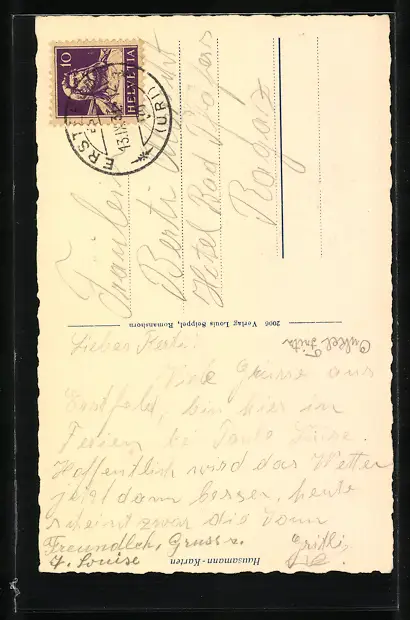 10
HELVETIA
ERSTFELD
(URI)
Fräulein
Berti
Hotel Bad Pfäfers
Ragaz
2006 Verlag Louis Seippel, Romanshorn
Onkel Fritz
Liebes Berti!
Viele Grüsse aus
Erstfeld, bin hier in
Ferien bei Tante Luise.
Hoffentlich wird das Wetter
jetzt dann besser, heute
scheint zwar die Sonn
Freundlch. Gruss v.
T. Louise
Gritli
Hausamann-Karten